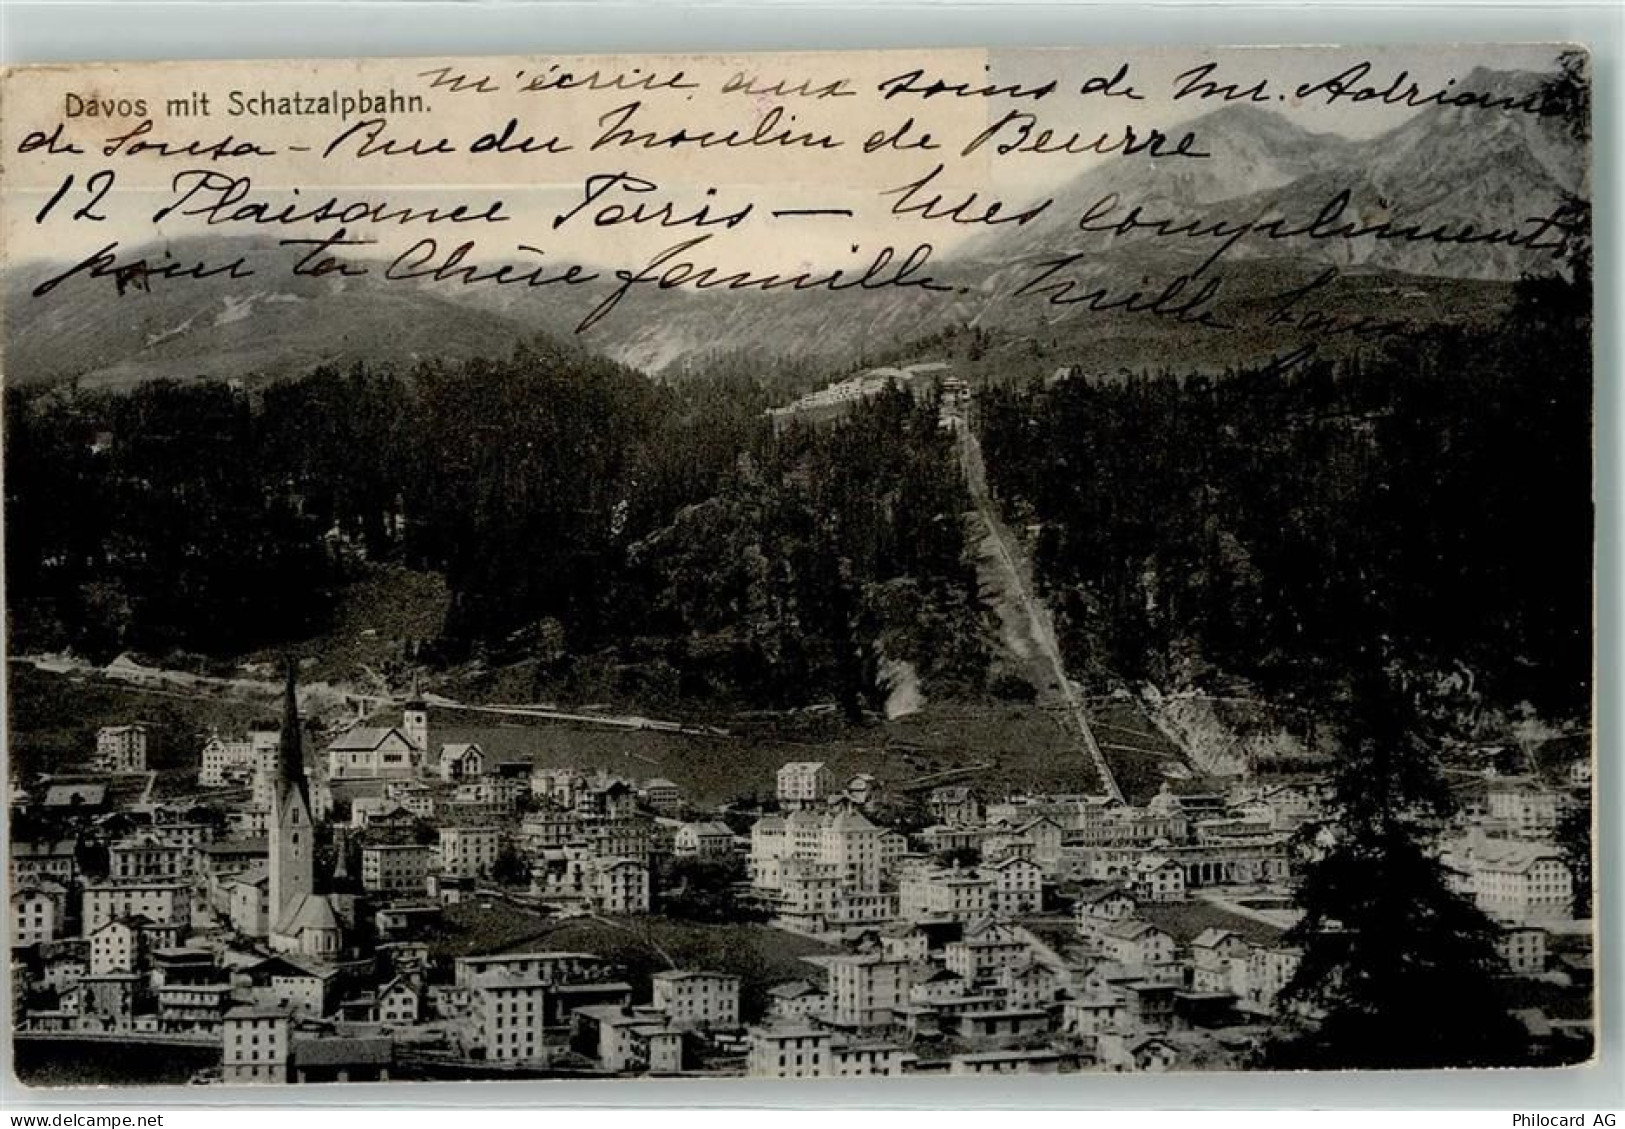 Davos mit Schatzalpbahn.
m'écrire aux soins de Mr. Adriano
de Sousa - Rue du Moulin de Beurre
12 Plaisance Paris — Mes compliments
pour ta Chère famille. Mille
Philocard AG